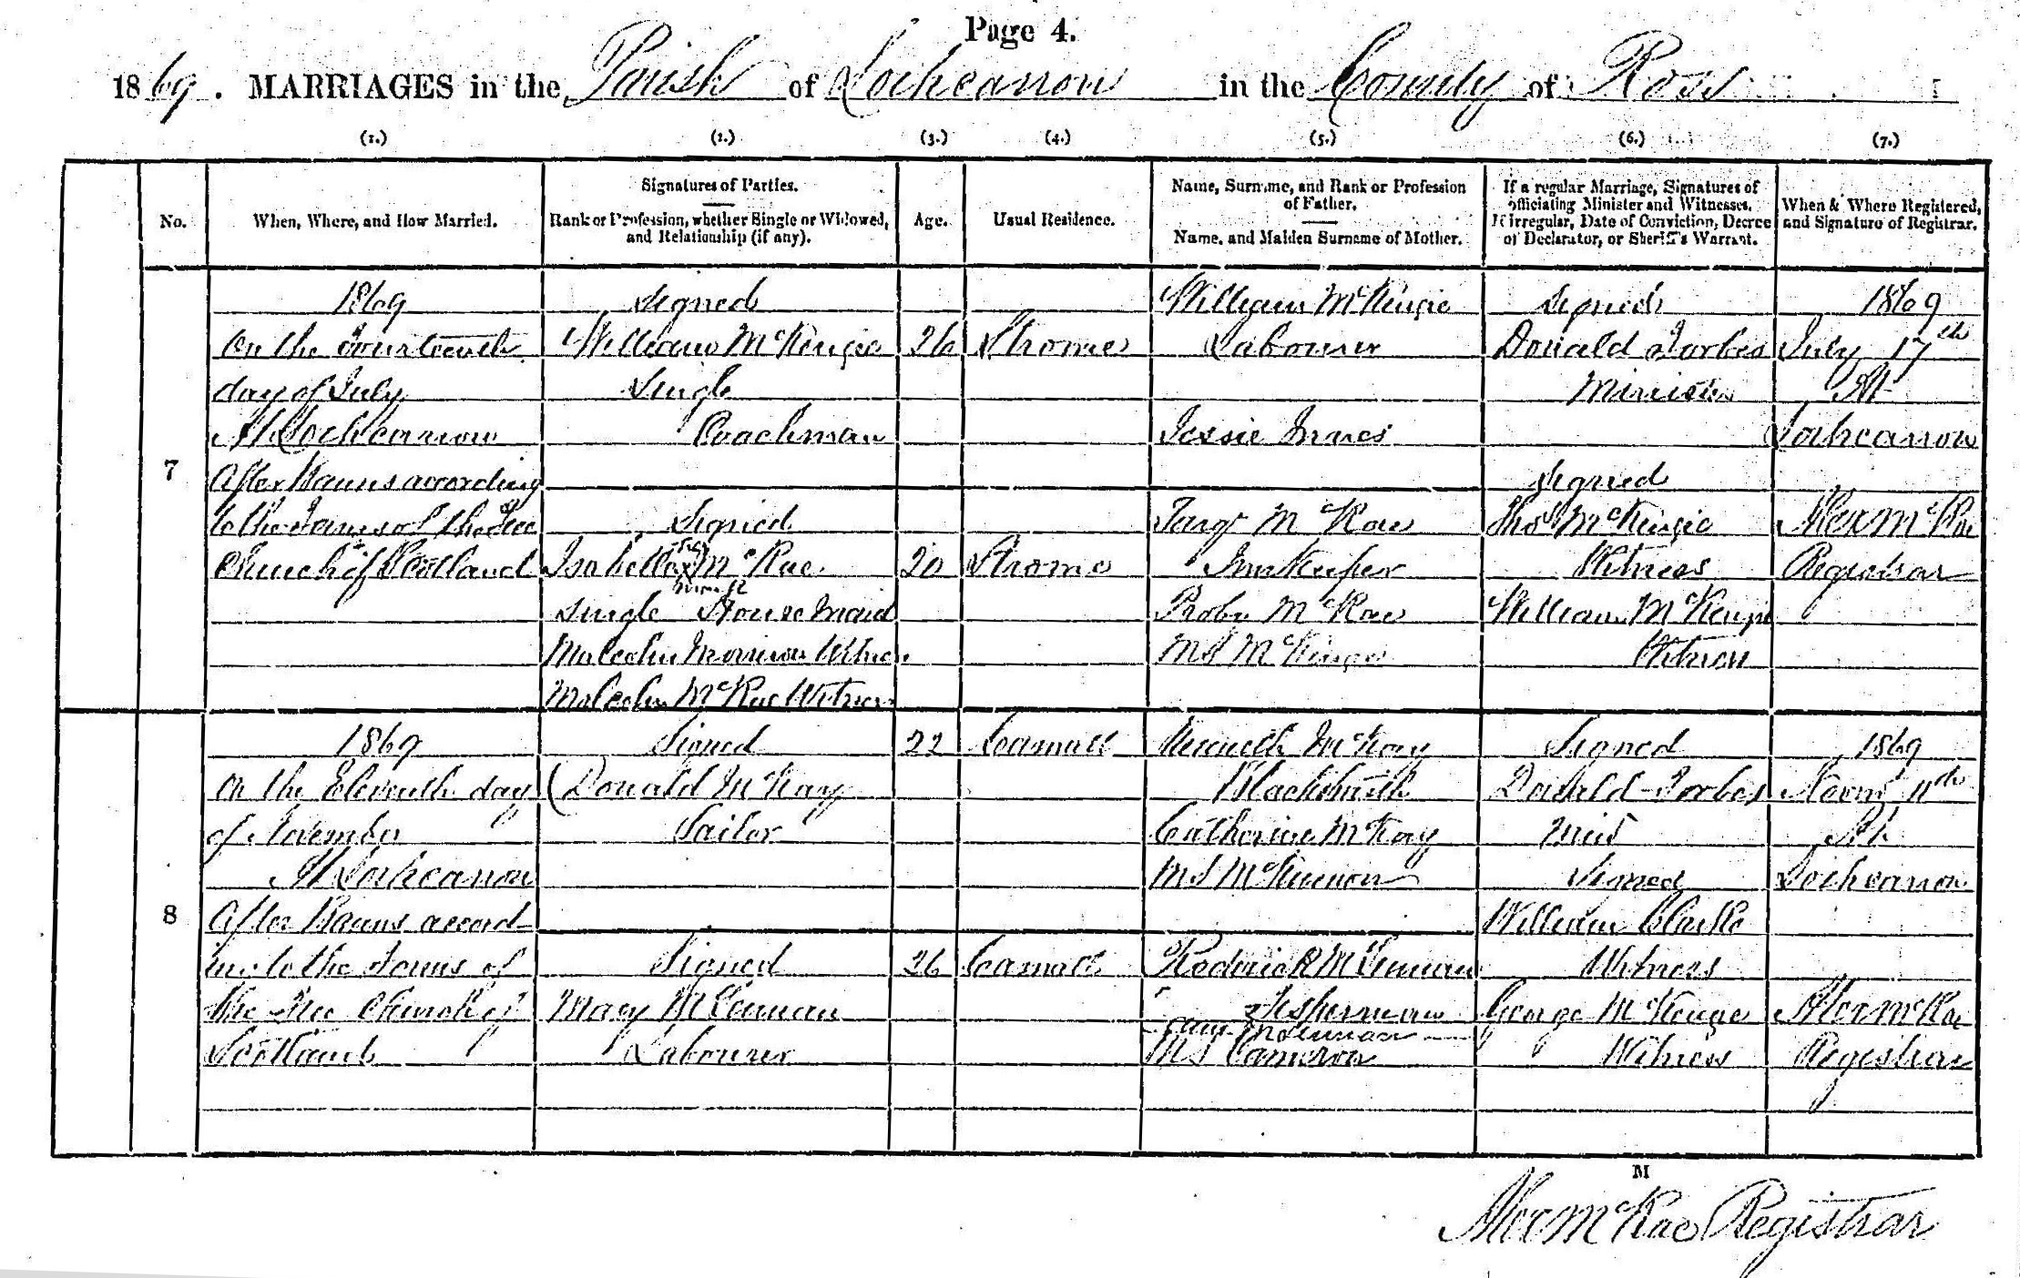 Page 4.
1869. MARRIAGES in the Parish of Lochcarron in the County of Ross
(1.) (2.) (3.) (4.) (5.) (6.) (7.)
No.
When, Where, and How Married.
Signatures of Parties.
Rank or Profession, whether Single or Widowed,
and Relationship (if any).
Age.
Usual Residence.
Name, Surname, and Rank or Profession
of Father.
Name, and Maiden Surname of Mother.
If a regular Marriage, Signatures of
officiating Minister and Witnesses.
If irregular, Date of Conviction, Decree
of Declarator, or Sheriff's Warrant.
When & Where Registered,
and Signature of Registrar.
7
1869
On the Fourteenth
day of July
At Lochcarron
After Banns according
to the Forms of the Free
Church of Scotland
Signed
William McKenzie
Single
Coachman
Signed
Isabella her x McRae
mark
Single House Maid
Malcolm Morrison Witness
Malcolm McRae Witness
26
20
Strome
Strome
William McKenzie
Labourer
Jessie Innes
Farqr McRae
Innkeeper
McRae
MS McKenzie
Signed
Donald Forbes
Minister
Signed
Thos McKenzie
Witness
William McKenzie
Witness
1869
July 17th
At
Lochcarron
Alex McRae
Registrar
8
1869
On the Eleventh day
of November
At Lochcarron
After Banns accord
ing to the Forms of
the Free Church of
Scotland
Signed
Donald McKay
Sailor
Signed
Mary McLennan
Labourer
22
26
Kenneth McKay
Blacksmith
Catherine McKay
MS McKinnon
Roderick McLennan
Fisherman
McLennan
MS Cameron
Signed
Donald Forbes
Minr
Signed
William Clarke
Witness
George McKenzie
Witness
1869
Novr 11th
At
Lochcarron
Alex McRae
Registrar
M
Alex McRae Registrar